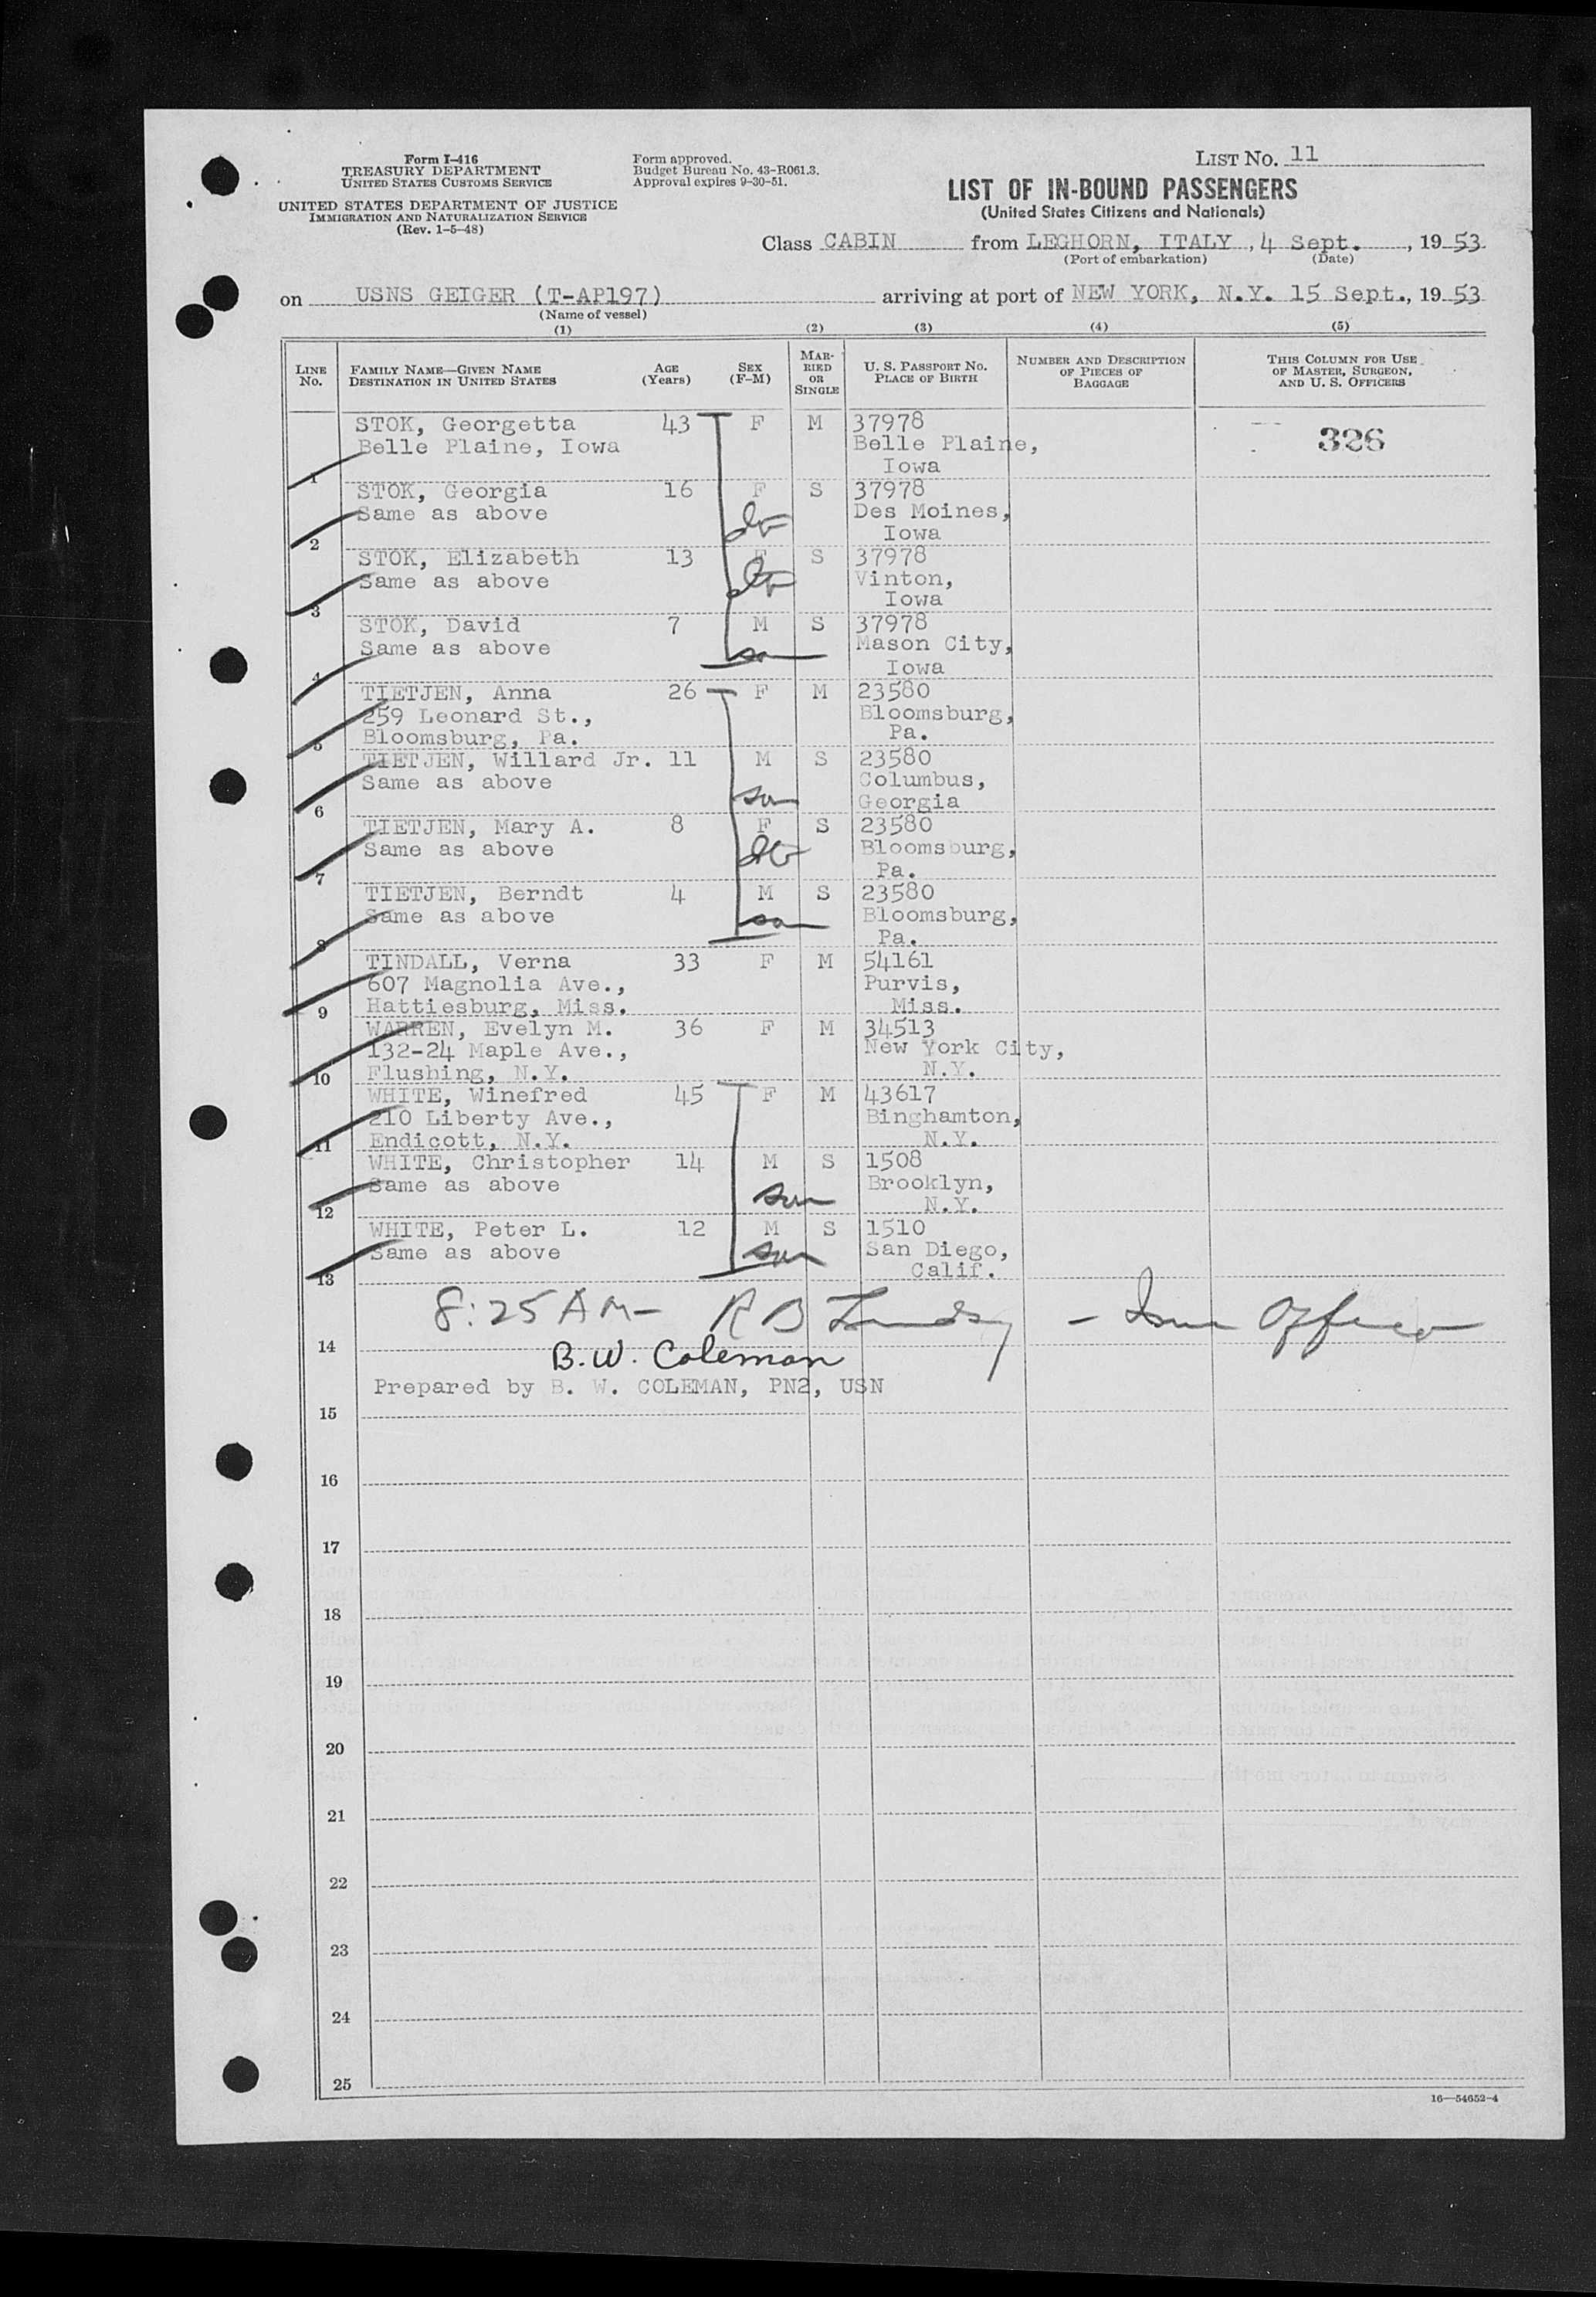 Form I-416
TREASURY DEPARTMENT
UNITED STATES CUSTOMS SERVICE
UNITED STATES DEPARTMENT OF JUSTICE
IMMIGRATION AND NATURALIZATION SERVICE
(Rev. 1-5-48)
Form approved.
Budget Bureau No. 43-R061.3.
Approval expires 9-30-51.
LIST NO. 11
LIST OF IN-BOUND PASSENGERS
(United States Citizens and Nationals)
Class CABIN from LEGHORN, ITALY, 4 Sept., 1953
(Port of embarkation) (Date)
on USNS GEIGER (T-AP197) arriving at port of NEW YORK, N.Y. 15 Sept., 1953
(Name of vessel)
(1) (2) (3) (4) (5)
LINE NO. FAMILY NAME—GIVEN NAME DESTINATION IN UNITED STATES AGE (Years) SEX (F-M) MARRIED OR SINGLE U. S. PASSPORT NO. PLACE OF BIRTH NUMBER AND DESCRIPTION OF PIECES OF BAGGAGE THIS COLUMN FOR USE OF MASTER, SURGEON, AND U. S. OFFICERS
STOK, Georgetta 43 F M 37978
326
Belle Plaine, Iowa Belle Plaine,
1 Iowa
STOK, Georgia 16 F S 37978
Same as above Des Moines,
2 Iowa
STOK, Elizabeth 13 F S 37978
Same as above Vinton,
3 Iowa
STOK, David 7 M S 37978
Same as above Mason City,
4 son Iowa
TIETJEN, Anna 26 F M 23580
259 Leonard St., Bloomsburg,
5 Bloomsburg, Pa. Pa.
TIETJEN, Willard Jr. 11 M S 23580
Same as above Columbus,
6 son Georgia
TIETJEN, Mary A. 8 F S 23580
Same as above Bloomsburg,
7 Pa.
TIETJEN, Berndt 4 M S 23580
Same as above son Bloomsburg,
8 Pa.
TINDALL, Verna 33 F M 54161
607 Magnolia Ave., Purvis,
9 Hattiesburg, Miss. Miss.
WARREN, Evelyn M. 36 F M 34513
132-24 Maple Ave., New York City,
10 Flushing, N.Y. N.Y.
WHITE, Winefred 45 F M 43617
210 Liberty Ave., Binghamton,
11 Endicott, N.Y. N.Y.
WHITE, Christopher 14 M S 1508
Same as above son Brooklyn,
12 N.Y.
WHITE, Peter L. 12 M S 1510
Same as above son San Diego,
13 Calif.
8:25 AM- R B Lindsy -
14
B.W. Coleman
Prepared by B. W. COLEMAN, PN2, USN
15
16
17
18
19
20
21
22
23
24
25
16—54652-4